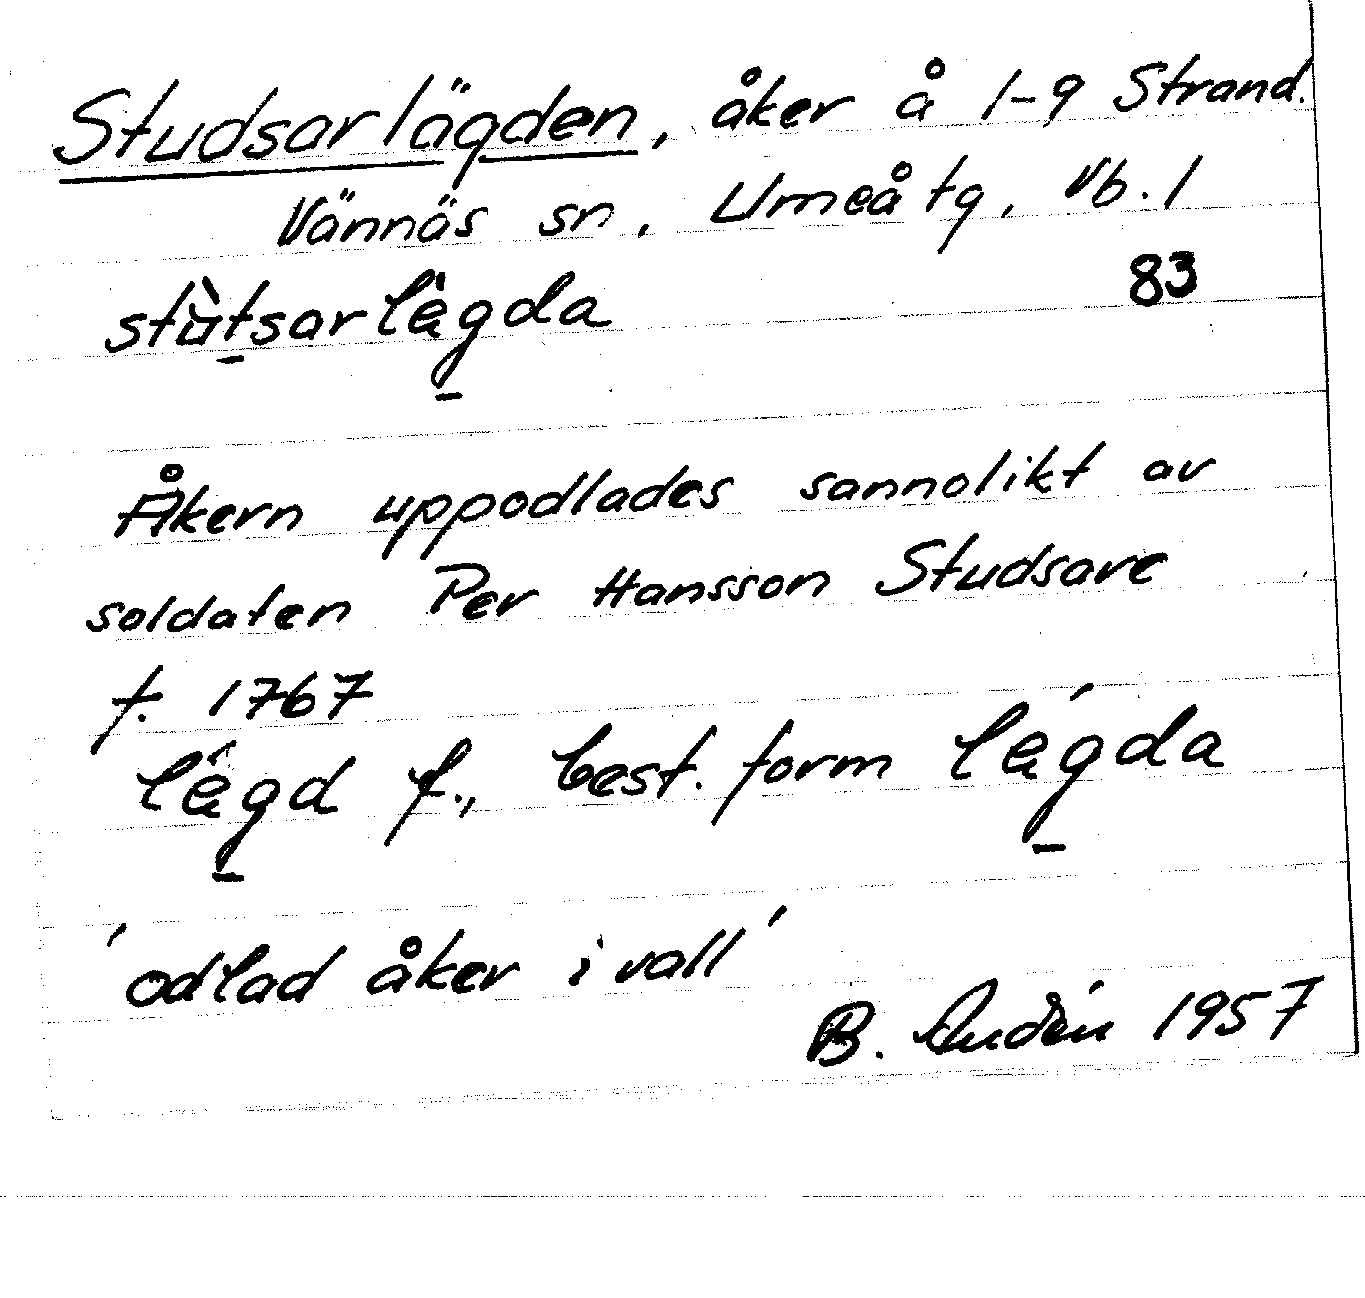 Studsarlägden, åker å 1-9 Strand.
Vännäs sn, Umeå tg, Vb. l
83
stùtsarlègda
Åkern uppodlades sannolikt av
soldaten Per Hansson Studsare
f. 1767
légd f., best. form légda
'odlad åker i vall'
B. Audén 1957